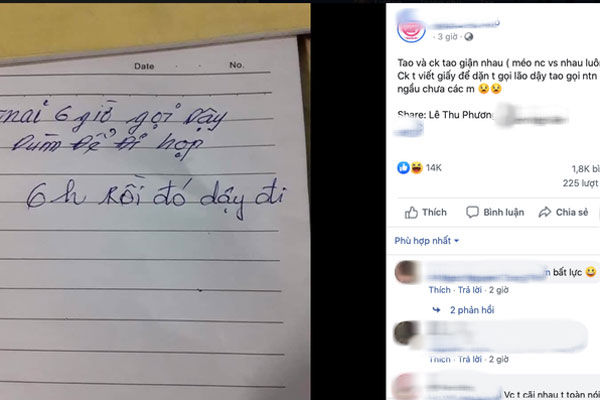 Date No.
mai 6 giờ gọi dậy
dùm để đi họp
6h rồi đó dậy đi
3 giờ
Tao và ck tao giận nhau ( méo nc vs nhau luôn
Ck t viết giấy để dặn t gọi lão dậy tao gọi ntn
ngầu chưa các m 😢😢
Share: Lê Thu Phương
14K
1,8K b
225 lượt
Thích Bình luận Chia sẻ
Phù hợp nhất
bất lực 😀
Thích · Trả lời · 2 giờ
2 phản hồi
Thích · Trả lời · 2 giờ
Vc t cãi nhau t toàn nói